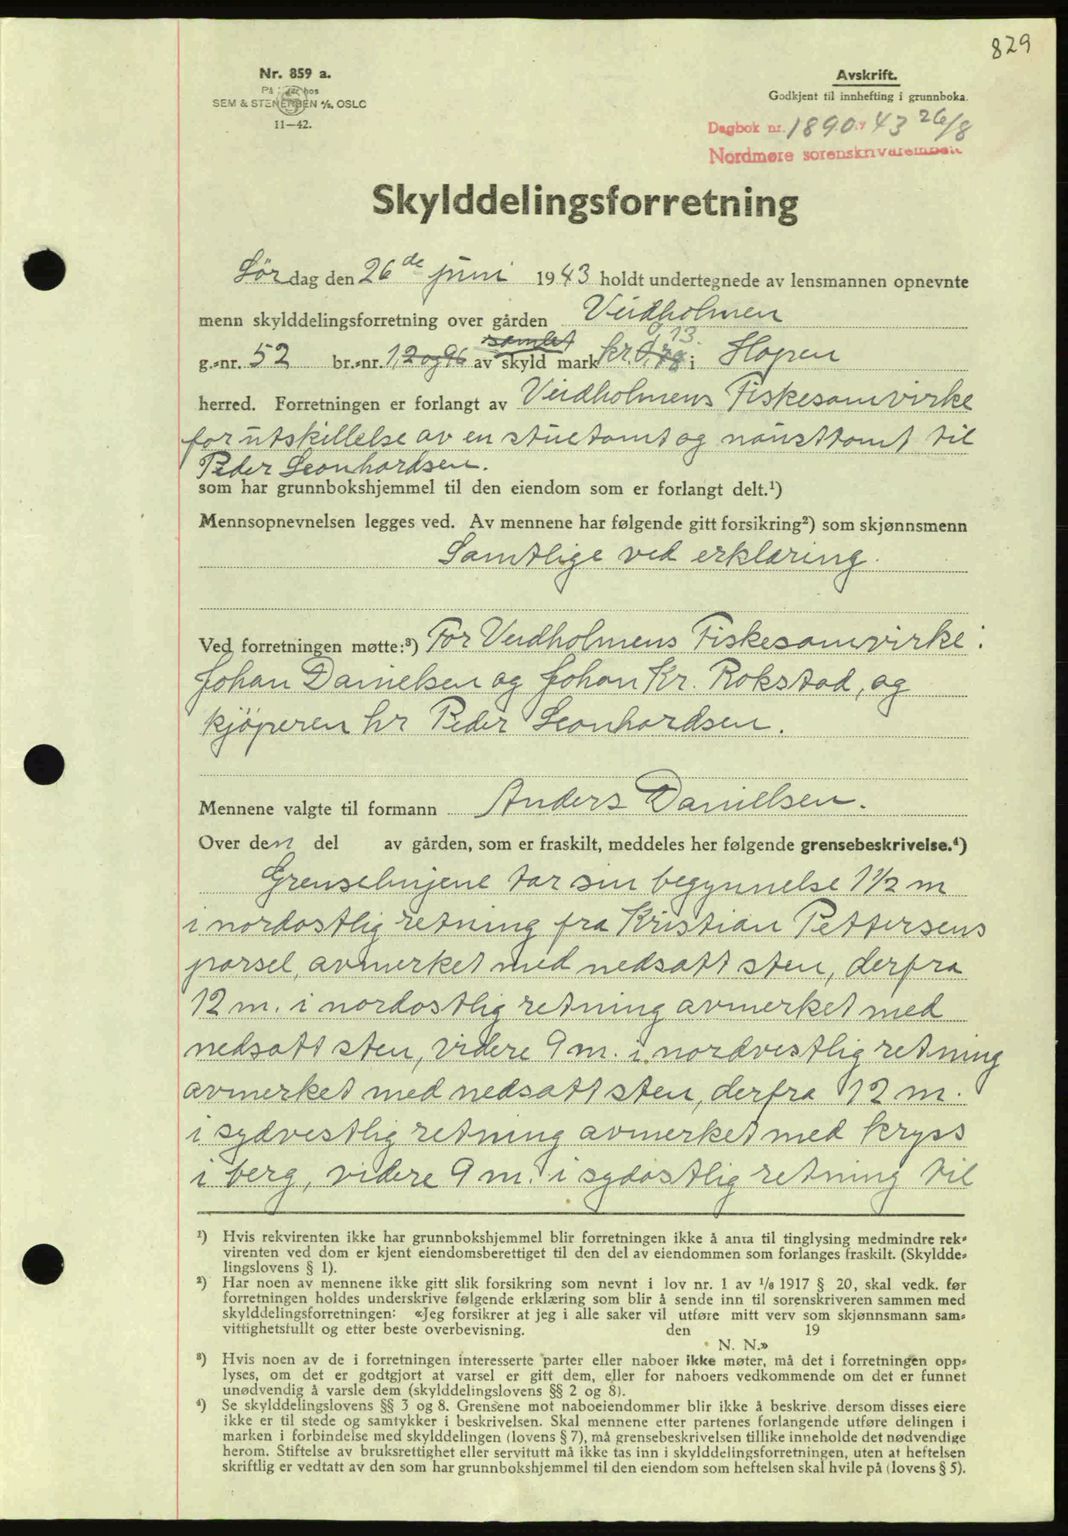 829
Nr. 859 a.
På lager hos
SEM & STENERSEN A/S, OSLO
11—42.
Avskrift.
Godkjent til innhefting i grunnboka.
Dagbok nr. 1890 43 26/8
Nordmøre sorenskriverembete
Skylddelingsforretning
Lördag den 26de juni 1943 holdt undertegnede av lensmannen opnevnte
menn skylddelingsforretning over gården Veidholmen
0,13.
g.-nr. 52 br.-nr. 1, 2 og 96 av samlet skyld mark kr. i Hopen
herred. Forretningen er forlangt av Veidholmens Fiskesamvirke
for utskillelse av en stuetomt og nausttomt til
Peder Leonhardsen.
som har grunnbokshjemmel til den eiendom som er forlangt delt.¹)
Mennsopnevnelsen legges ved. Av mennene har følgende gitt forsikring²) som skjønnsmenn
Samtlige ved erklæring.
Ved forretningen møtte:³) For Veidholmens Fiskesamvirke:
Johan Danielsen og Johan Kr. Rokstad, og
kjöperen hr Peder Leonhardsen.
Mennene valgte til formann Anders Danielsen.
Over den del av gården, som er fraskilt, meddeles her følgende grensebeskrivelse.⁴)
Grenselinjene tar sin begynnelse 1½ m
i nordostlig retning fra Kristian Pettersens
parsel, avmerket med nedsatt sten, derfra
12 m. i nordostlig retning avmerket med
nedsatt sten, videre 9 m. i nordvestlig retning
avmerket med nedsatt sten, derfra 12 m.
i sydvestlig retning avmerket med kryss
i berg, videre 9 m. i sydostlig retning til
¹) Hvis rekvirenten ikke har grunnbokshjemmel blir forretningen ikke å anta til tinglysing medmindre rek-
virenten ved dom er kjent eiendomsberettiget til den del av eiendommen som forlanges fraskilt. (Skyldde-
lingslovens § 1).
²) Har noen av mennene ikke gitt slik forsikring som nevnt i lov nr. 1 av 1/6 1917 § 20, skal vedk. før
forretningen holdes underskrive følgende erklæring som blir å sende inn til sorenskriveren sammen med
skylddelingsforretningen: «Jeg forsikrer at jeg i alle saker vil utføre mitt verv som skjønnsmann sam-
vittighetsfullt og etter beste overbevisning. den 19
N. N.»
³) Hvis noen av de i forretningen interesserte parter eller naboer ikke møter, må det i forretningen opp-
lyses, om det er godtgjort at varsel er gitt dem, eller for naboers vedkommende om det er funnet
unødvendig å varsle dem (skylddelingslovens §§ 2 og 8).
⁴) Se skylddelingslovens §§ 3 og 8. Grensene mot naboeiendommer blir ikke å beskrive dersom disses eiere
ikke er til stede og samtykker i beskrivelsen. Skal mennene etter partenes forlangende utføre delingen i
marken i forbindelse med skylddelingen (lovens § 7), må grensebeskrivelsen tillike inneholde det nødvendige
herom. Stiftelse av bruksrettighet eller servitutt må ikke tas inn i skylddelingsforretningen, uten at heftelsen
skriftlig er vedtatt av den som har grunnbokshjemmel til den eiendom som heftelsen skal hvile på (lovens § 5).